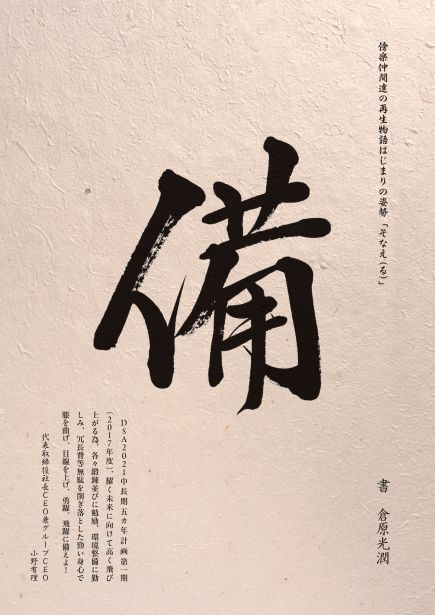 傍楽仲間達の再生物語はじまりの姿勢「そなえ(る)」
備
書 倉原光潤
DSA2021中長期五カ年計画第一期
(2017年度)、耀く未来に向けて高く飛び
上がる為、各々鍛錬並びに勉励、環境整備に勤
しみ、冗長費等無駄を削ぎ落とした勁い身心で
膝を曲げ、目線を上げ、勇躍、飛躍に備えよ!
代表取締役社長CEO兼グループCEO
小野有理